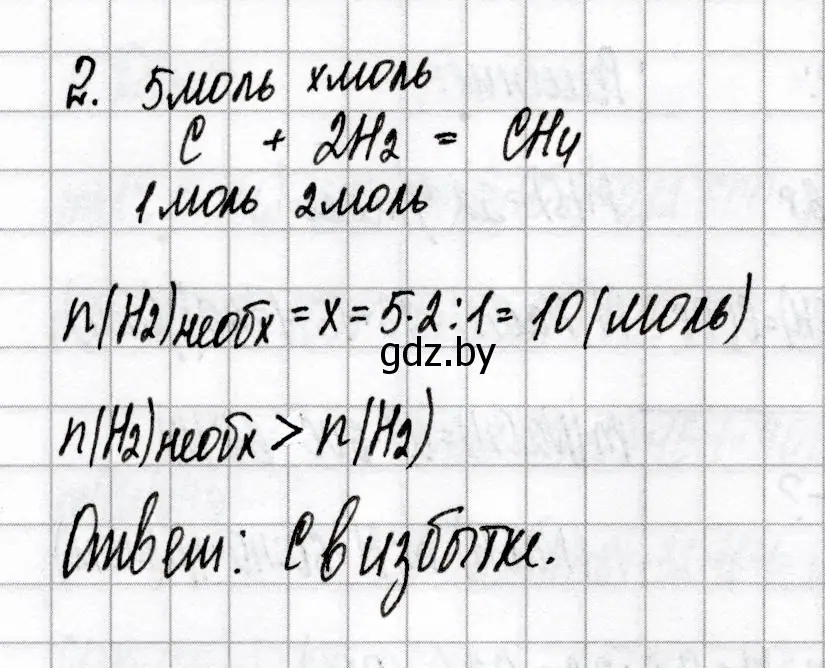 2. 5 моль х моль
C + 2H2 = CH4
1 моль 2 моль
n(H2)необх = x = 5·2:1 = 10 (моль)
gdz.by
n(H2)необх > n(H2)
Ответ: C в избытке.